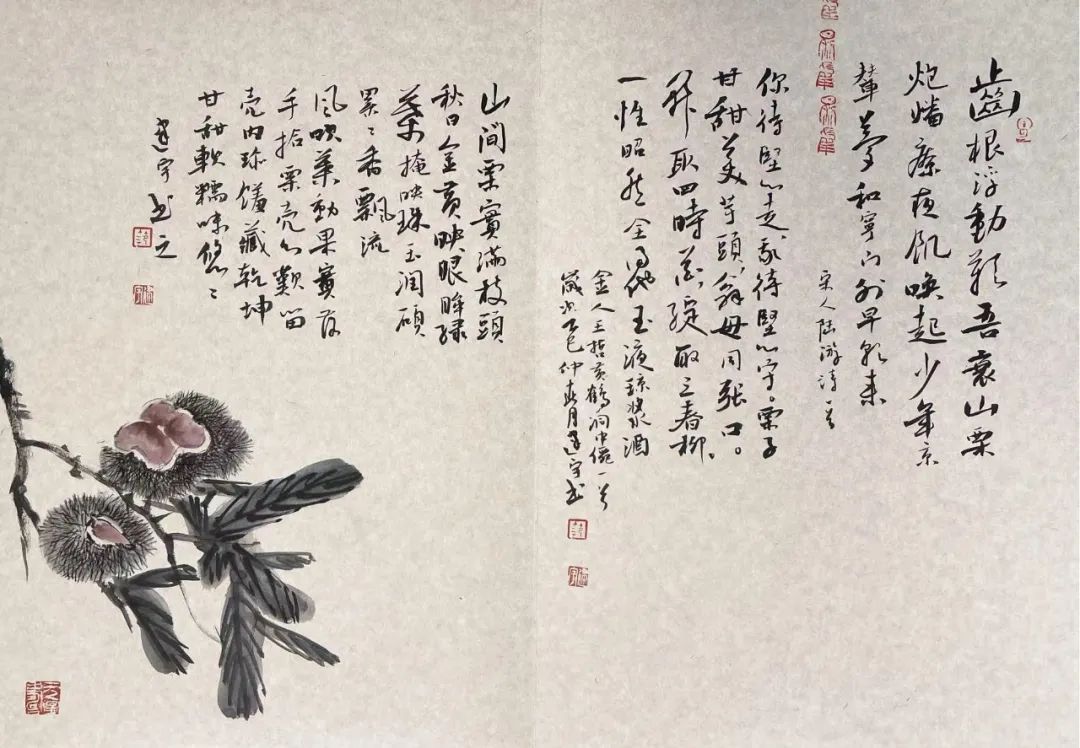 齒根浮動歎吾衰山栗
炮燔療夜飢喚起少年京
輦夢和寧門外早朝來
宋人陸游詩一首
你待堅心走,我待堅心守。栗子
甘甜美芋頭,翁母同張口。
開取四時花綻取三春柳。
一性昭然全得他玉液瓊漿酒
金人王喆黃鶴洞中僊一首
歲次乙巳仲春月 书
山間栗實滿枝頭
秋日金黃映眼眸綠
葉掩映珠玉潤碩
累々香飄流
風吹葉動果實落
手拾栗壳心歡留
壳内珍饈藏乾坤
甘甜軟糯味悠々
书之